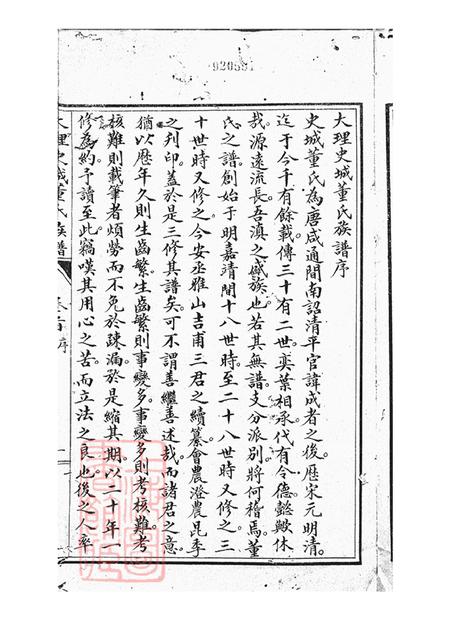 920581
大理史城董氏族譜序
史城董氏為唐咸通間南詔清平官諱成者之後歷宋元明清
迄于今千有餘載傳三十有二世奕葉相承代有令德懿歟休
哉源遠流長吾滇之盛族也若其無譜支分派別將何稽焉董
氏之譜創始于明嘉靖間十八世時至二十八世時又修之三
十世時又修之今安丞雅山吉甫三君之續纂會農澄農昆季
之刋印蓋於是三修其譜矣可不謂善繼善述哉而諸君之意
猶以歷年久則生齒繁生齒繁則事變多事變多則考核難考
核難則載筆者煩勞而不免於疎漏於是縮其期以二十年一
修為約予讀至此竊嘆其用心之苦而立法之良也後之人率
大理史城董氏族譜
序